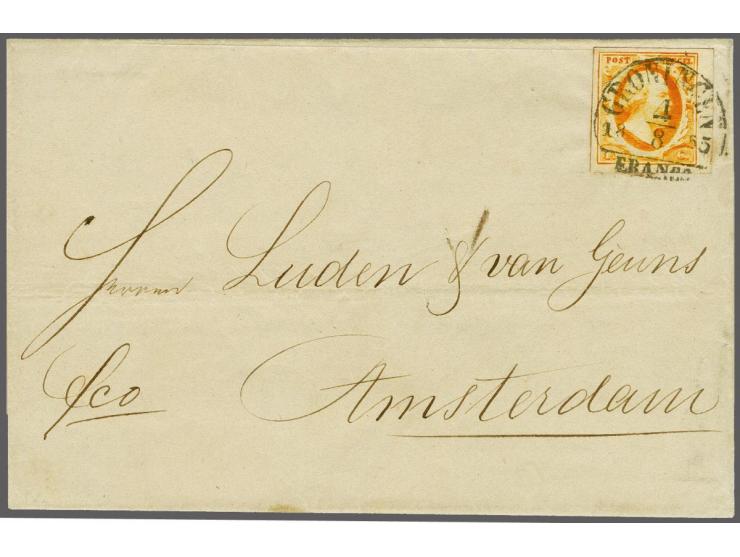 POST
GRONINGEN
4
18 8 53
FRANCO
Herren Luden & van Geuns
fco Amsterdam